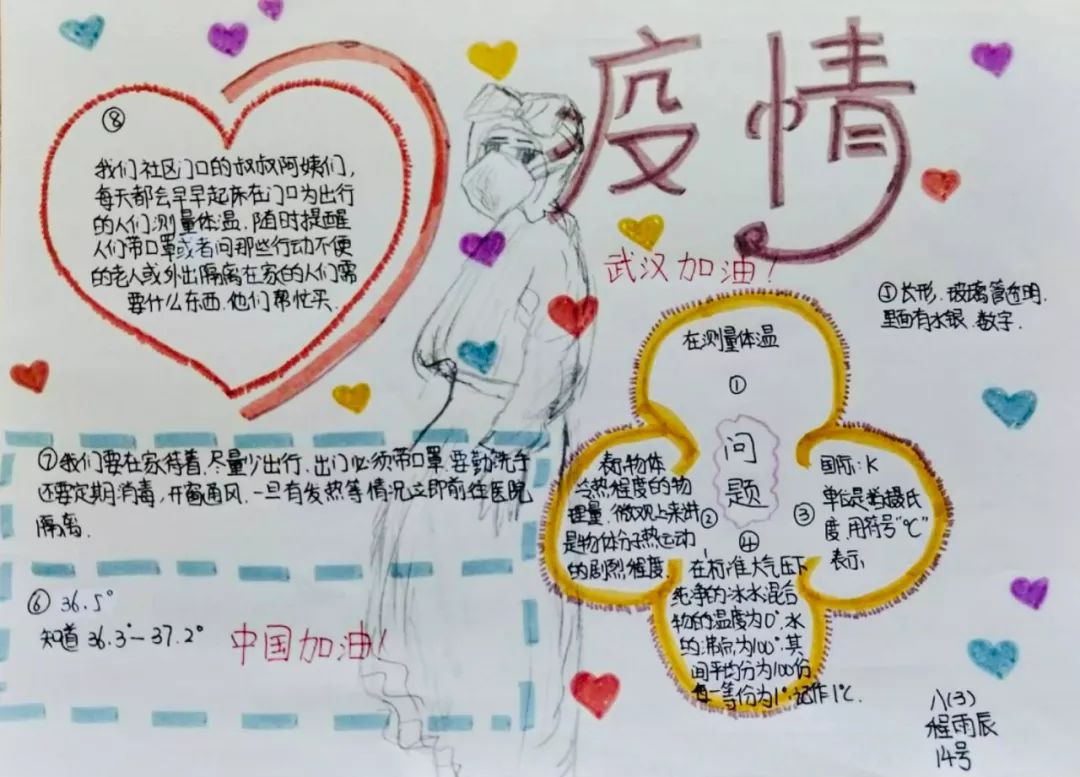 疫情
武汉加油!
⑧
我们社区门口的叔叔阿姨们,
每天都会早早起床在门口为出行
的人们测量体温.随时提醒
人们带口罩或者问那些行动不便
的老人或外出隔离在家的人们需
要什么东西.他们帮忙买.
⑤长形.玻璃管透明.
里面有水银.数字.
问题
在测量体温
①
表示物体
冷热程度的物
理量.微观上来讲
是物体分子热运动
的剧烈程度.
②
③
国际:K
单位是:摄氏
度.用符号"℃"
表示.
④
在标准大气压下
纯净的冰水混合
物的温度为0°.水
的沸点为100°.其
间平均分为100份
每一等份为1°.记作1℃.
⑦我们要在家待着.尽量少出行.出门必须带口罩.要勤洗手
还要定期消毒,开窗通风.一旦有发热等情况立即前往医院
隔离.
⑥ 36.5°
知道36.3°—37.2°
中国加油!
八(3)
程雨辰
14号